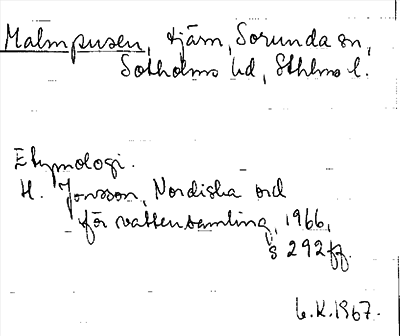 Malmpusen, tjärn, Sorunda sn,
Sotholms hd, Sthlms l.
Etymologi.
H. Jonsson, Nordiska ord
för vattensamling, 1966,
s 292ff.
L.K. 1967.